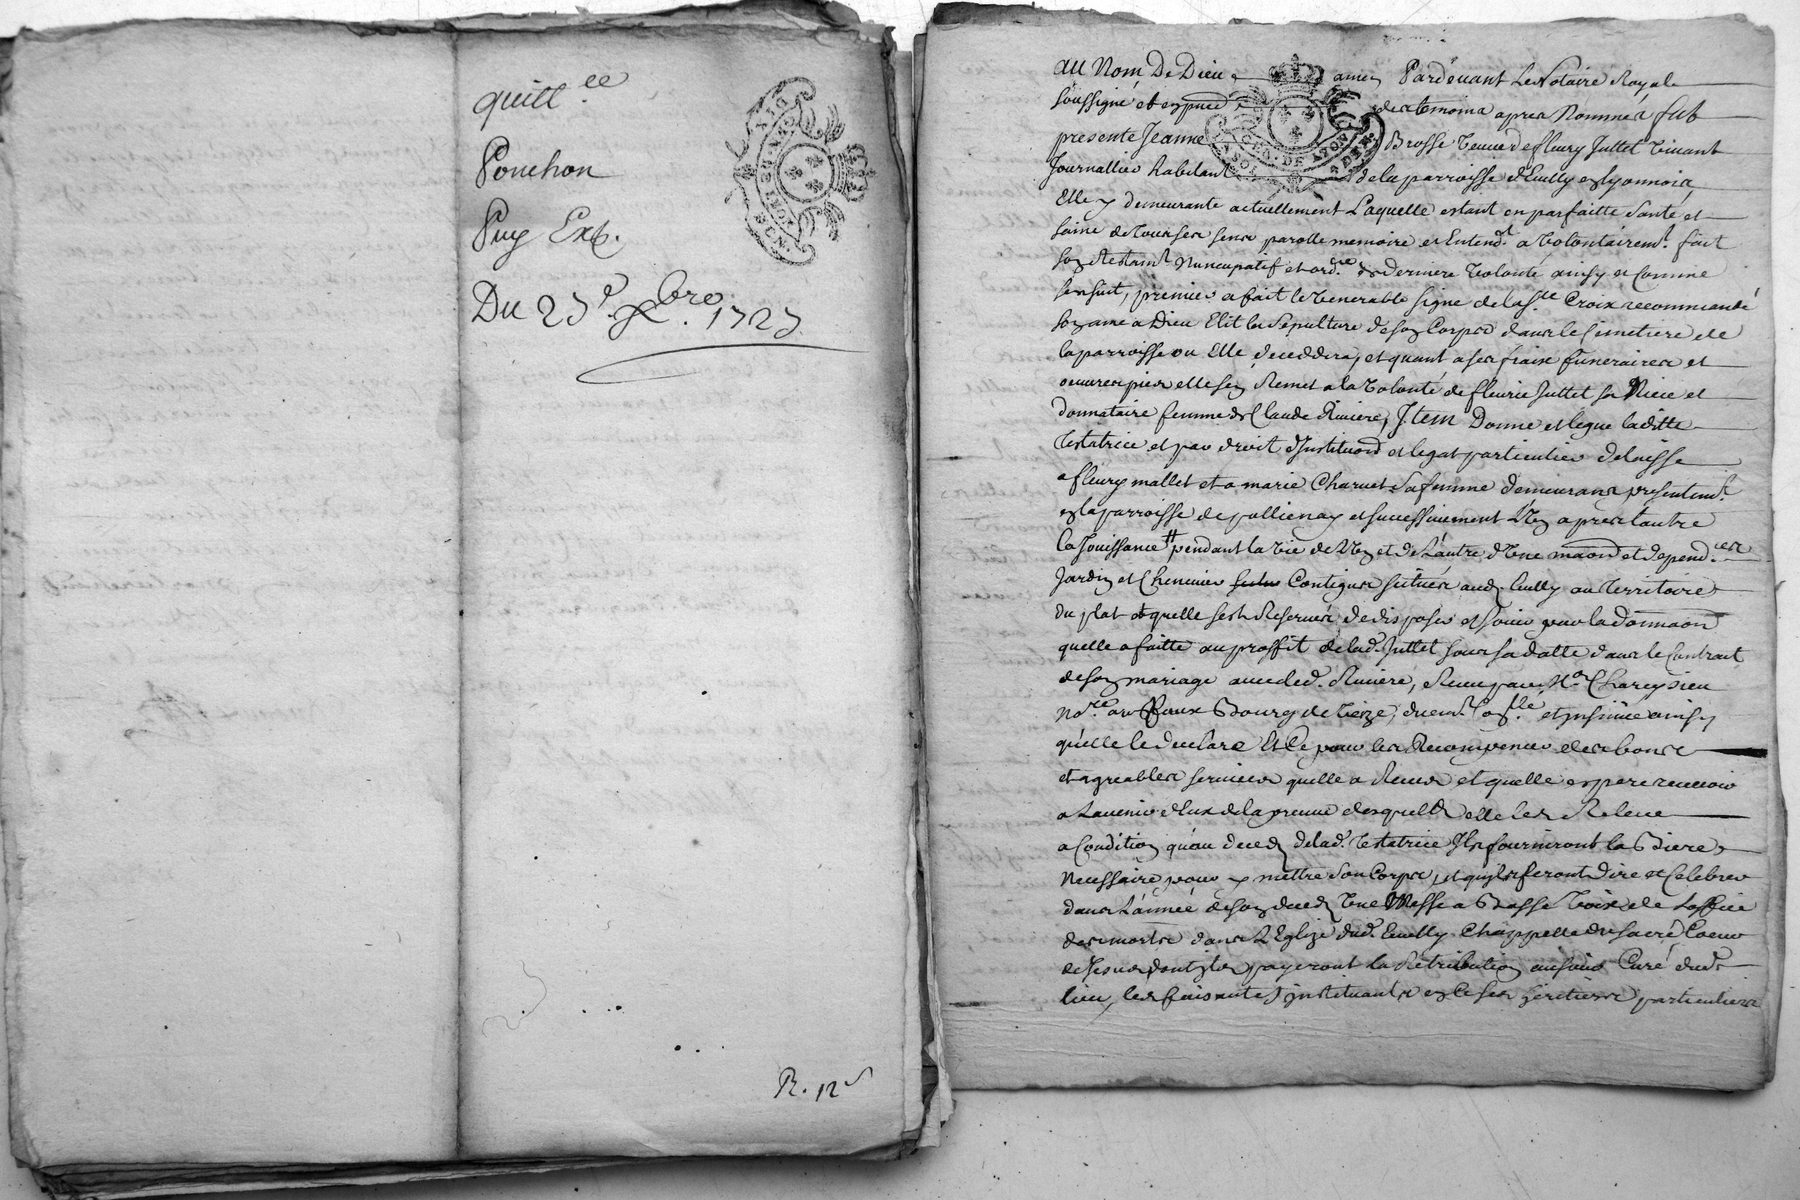 quitt.ce
Ponchon
Puy Ext.
Du 23e Xbre 1723
R. 12 s
GEN. DE LYON
au Nom De Dieu amen Pardevant Le Notaire Royal
soussigné et en presce des temoins apres Nommés fut
presente Jeanne Brosse veuve de fleury Juttet vivant
Journallier habitant de la parroisse d'Eculy en lyonnois,
Elle y demeurante actuellement Laquelle estant en parfaitte santé et
saine de tous ses sens parolle memoire et Entendt a volontairemt fait
son testamt Nuncupatif et ordce de derniere volonté ainsy et comme
sensuit, premier a fait le venerable signe de la Ste Croix recommandé
son ame a Dieu Elit la Sepulture de son Corps dans le Cimetiere de
la parroisse ou Elle deceddera, et quant a ses fraix funeraires et
oeuvres pies elle sen Remet a la volonté de fleurie Juttet sa Niece et
donnataire femme de Claude Riviere, Item Donne et legue laditte
testatrice et par droit d'Institution et legat particulier delaisse
a fleury mallet et a marie Charvet sa femme demeurans presentemt
en la parroisse de pollienay et successivement L'un apres lautre
la Jouissance pendant la vie de L'un et de Lautre d'Une maon et depend.ces
Jardin et Chenevier Contigus scitués aud. Eculy au territoire
du plat quelle sest Reservés de disposer et Jouir par la donnaon
quelle a faitte au proffit de lad. Juttet sous sa datte dans le Contrait
de son mariage avec led. Riviere, Receu par Me Chareysieu
Nore au faux Bourg de Veize, et Insinué ainsy
qu'elle le declare Et Ce pour les Recompencer des bons
et agreables services quelle a Receus et quelle espere recevoir
a Lavenir d'Eux de la preuve desquels elle les Releve
a Condition qu'au deces de lad. testatrice Ils fourniront la Biere
Necessaire pour y mettre son Corps, et quils feront Dire et Celebrer
dans L'année de son deces Une Messe a Basse voix de Loffice
des morts dans L'Eglize dud. Eculy Chappelle du Sacré Coeur
de Jesus dont ils payeront la Retribution au sieur Curé dud.
lieu, les faisant et Instituants en ce ses heritiers particuliers